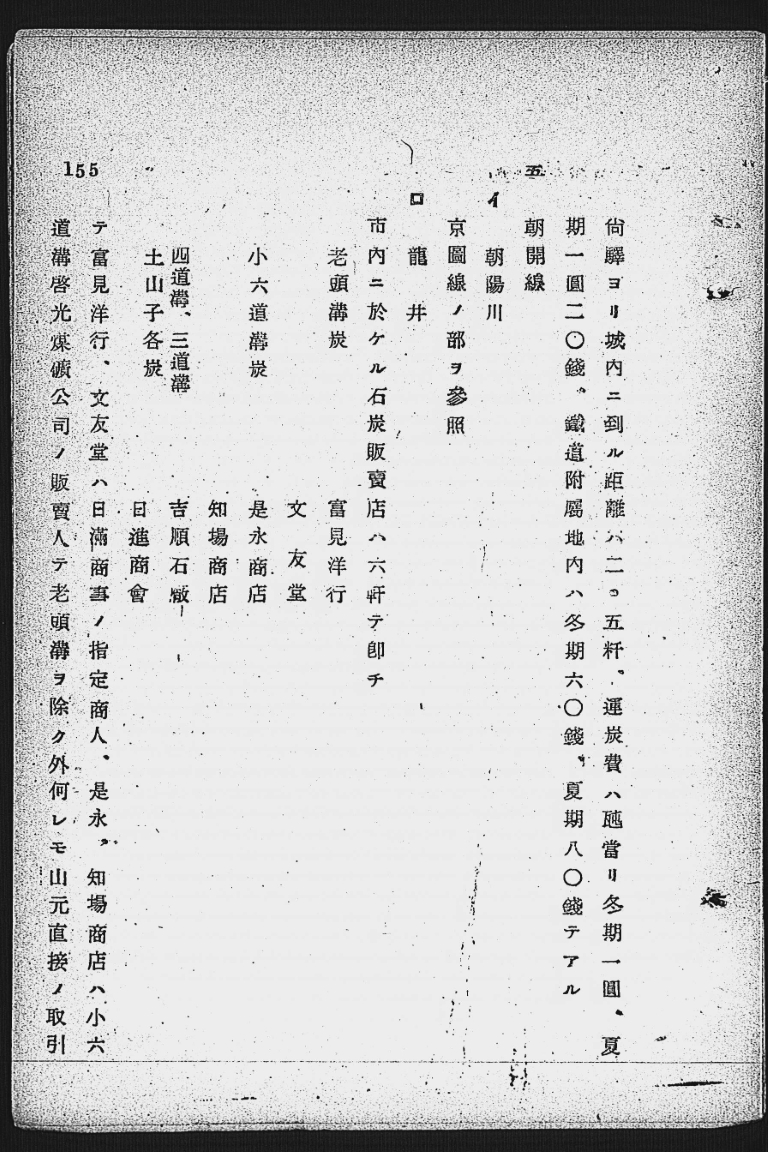 尙驛ヨリ城内ニ到ル距離ハ二・五粁、運炭費ハ瓲當リ冬期一圓、夏
期一圓二〇錢、鐵道附屬地内ハ冬期六〇錢、夏期八〇錢テアル
五 朝開線
イ 朝陽川
京圖線ノ部ヲ參照
ロ 龍井
市内ニ於ケル石炭販賣店ハ六軒テ卽チ
老頭溝炭 富見洋行
文友堂
小六道溝炭 是永商店
知場商店
四道溝、三道溝 吉順石廠
土山子各炭 日進商會
テ富見洋行、文友堂ハ日滿商事ノ指定商人、是永、知場商店ハ小六
道溝啓光煤礦公司ノ販賣人テ老頭溝ヲ除ク外何レモ山元直接ノ取引
155